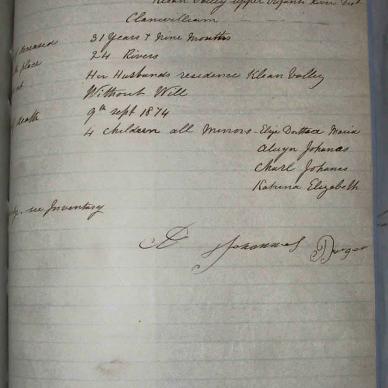 Klean Valley upper Olifants River Dist
Clanwilliam
deceased 31 Years & Nine Months
place 24 Rivers
Her Husbands residence Klean Valley
Without Will
death 9th Sept 1874
4 children all Minors - Maria
Alwyn Johanas
Charl Johanas
Katrina Elizabeth
see Inventory
Johannas